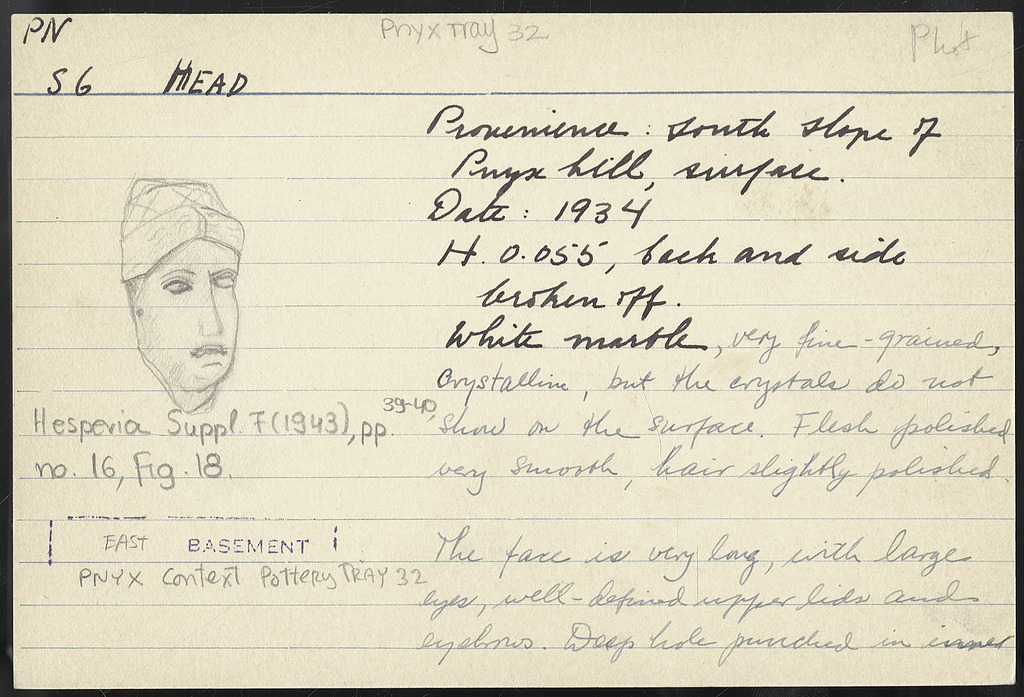 PN
Pnyx Tray 32
Phot
S 6 HEAD
Provenience: South slope of
Pnyx hill, surface.
Date: 1934
H. 0.055, back and side
broken off.
White marble, very fine-grained,
crystalline, but the crystals do not
show on the surface. Flesh polished
very smooth, hair slightly polished.
Hesperia Suppl. 7 (1943), pp. 39-40,
no. 16, Fig. 18.
EAST BASEMENT
PNYX Context Pottery TRAY 32
The face is very long, with large
eyes, well-defined upper lids and
eyebrows. Deep hole punched in inner